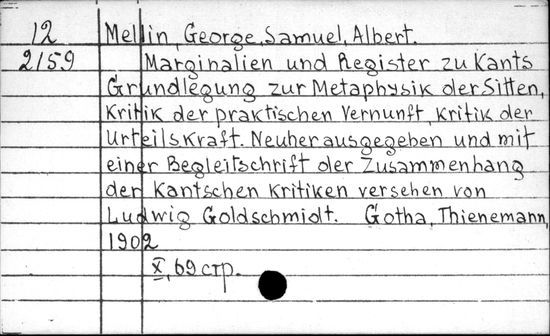 12 Mellin, George, Samuel, Albert.
2159 Marginalien und Register zu Kants
Grundlegung zur Metaphysik der Sitten,
Kritik der praktischen Vernunft, Kritik der
Urteilskraft. Neuherausgegeben und mit
einer Begleitschrift der Zusammenhang
der Kantschen Kritiken versehen von
Ludwig Goldschmidt. Gotha, Thienemann,
1902
X, 69 стр.